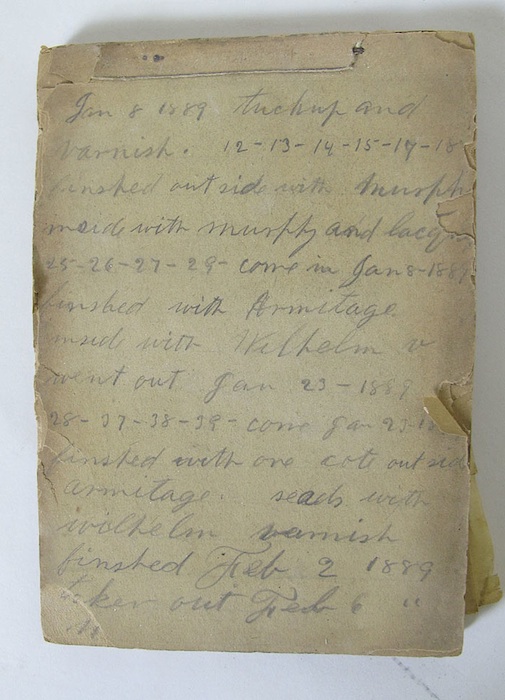 Jan 8 1889 tuchup and
varnish. 12-13-14-15-17-18
finshed out side with Murph
inside with murphy and lacqu
25-26-27-29- come in Jan 8-1889
finshed with Armitage.
inside with Wilhelm v
went out Jan 23-1889
28-37-38-39- come Jan 23-18
finshed with one cote out side
armitage. seads with
wilhelm varnish
finshed Feb 2 1889
out Feb 6 "